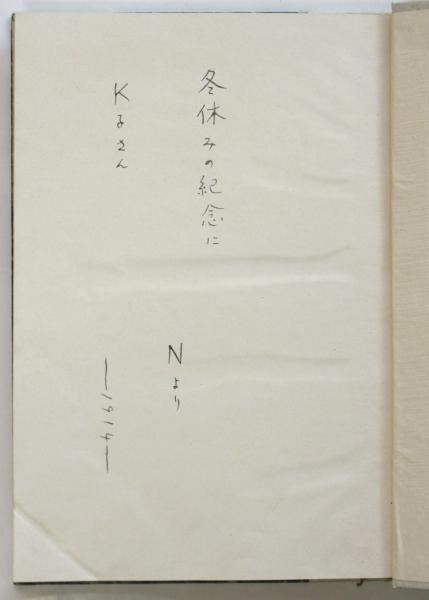 冬休みの紀念に
Nより
K子さん
—1914—